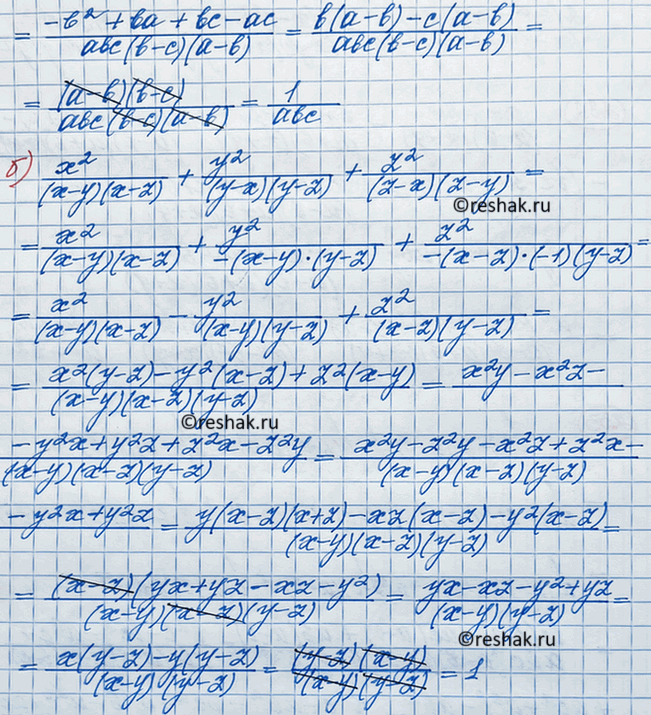 = (-b² + ba + bc - ac)/(abc(b-c)(a-b)) = (b(a-b) - c(a-b))/(abc(b-c)(a-b)) =
= ((a-b)(b-c))/(abc(b-c)(a-b)) = 1/(abc)
б) x²/((x-y)(x-z)) + y²/((y-x)(y-z)) + z²/((z-x)(z-y)) =
©reshak.ru
= x²/((x-y)(x-z)) + y²/(-(x-y)·(y-z)) + z²/(-(x-z)·(-1)(y-z)) =
= x²/((x-y)(x-z)) - y²/((x-y)(y-z)) + z²/((x-z)(y-z)) =
= (x²(y-z) - y²(x-z) + z²(x-y))/((x-y)(x-z)(y-z)) = x²y - x²z -
©reshak.ru
(- y²x + y²z + z²x - z²y)/((x-y)(x-z)(y-z)) = (x²y - z²y - x²z + z²x -)/((x-y)(x-z)(y-z))
- y²x + y²z = (y(x-z)(x+z) - xz(x-z) - y²(x-z))/((x-y)(x-z)(y-z)) =
= ((x-z)(yx + yz - xz - y²))/((x-y)(x-z)(y-z)) = (yx - xz - y² + yz)/((x-y)(y-z)) =
©reshak.ru
= (x(y-z) - y(y-z))/((x-y)(y-z)) = ((y-z)(x-y))/((x-y)(y-z)) = 1